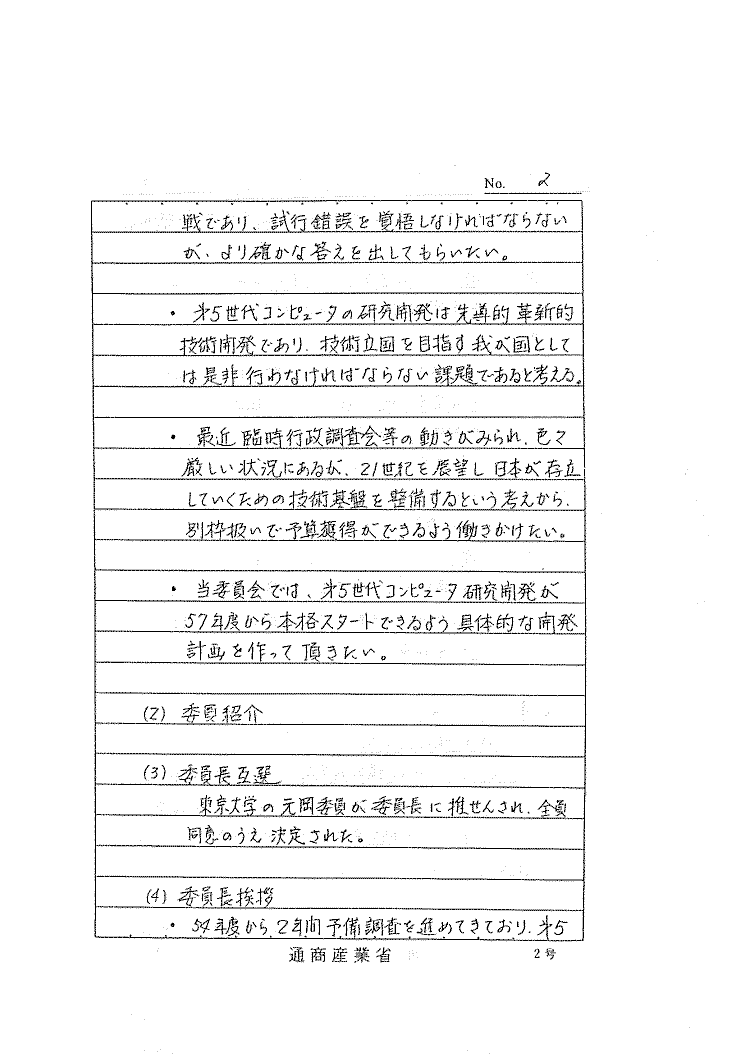 No. 2
戦であり、試行錯誤を覚悟しなければならない
が、より確かな答えを出してもらいたい。
・ 第5世代コンピュータの研究開発は先導的革新的
技術開発であり、技術立国を目指す我が国として
は是非行わなければならない課題であると考える。
・ 最近臨時行政調査会等の動きがみられ、色々
厳しい状況にあるが、21世紀を展望し日本が存立
していくための技術基盤を整備するという考えから、
別枠扱いで予算獲得ができるよう働きかけたい。
・ 当委員会では、第5世代コンピュータ研究開発が
57年度から本格スタートできるよう具体的な開発
計画を作って頂きたい。
(2) 委員紹介
(3) 委員長互選
東京大学の元岡委員が委員長に推せんされ、全員
同意のうえ決定された。
(4) 委員長挨拶
・ 54年度から2年間予備調査を進めてきており、第5
通商産業省 2号